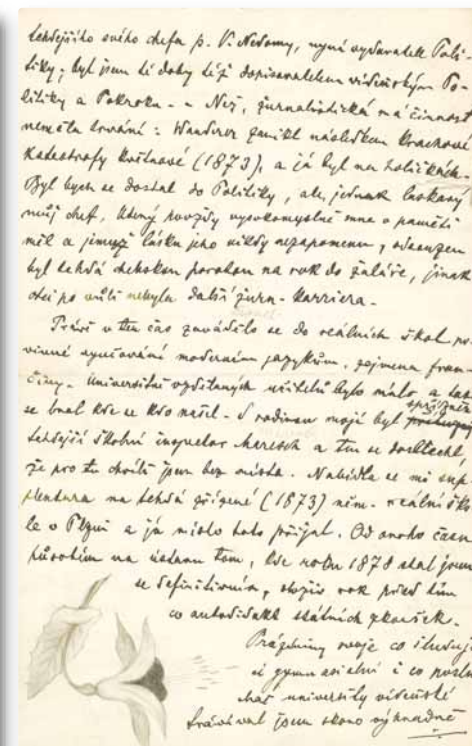 tehdejšího svého chefa p. V. Nedomy, nyní vydavatele Poli-
tiky; byl jsem té doby též dopisovatelem vídeňským Po-
litiky a Pokroku. - Než, žurnalistická má činnost
neměla trvání: Wanderer zanikl následkem krachové
katastrofy květnové (1873), a já byl na holičkách.
Byl bych se dostal do Politiky, ale jednak laskavý
můj chef, který povždy vysokomyslně mne v paměti
měl a jemuž lásku jeho nikdy nezapomenu, odsouzen
byl tehdá porotou na rok do žaláře, jinak
otci po vůli nebyla další žurn. karriera.
Právě v ten čas zavádělo se do reálních škol po-
vinné vyučování moderním jazykům, zejmena fran-
činy. Universitně vzdělaných učitelů bylo málo, a tak
se bral kde se kdo našel. S rodinou mojí byl spřízněn
tehdejší školní inspector Maresch a ten se doslechl,
že pro tu chvíli jsem bez místa. Nabídla se mi sup-
plentura na tehdá zřízené (1873) něm. reální ško-
le v Plzni a já místo toto přijal. Od onoho času
působím na ústavu tom, kde roku 1878 stal jsem
se definitivním, složiv rok před tím
co autodidakt státních zkoušek.
Prázdniny svoje co studující
ať gymnasielní i co poslu-
chač university vídeňské
trávíval jsem skoro výhradně